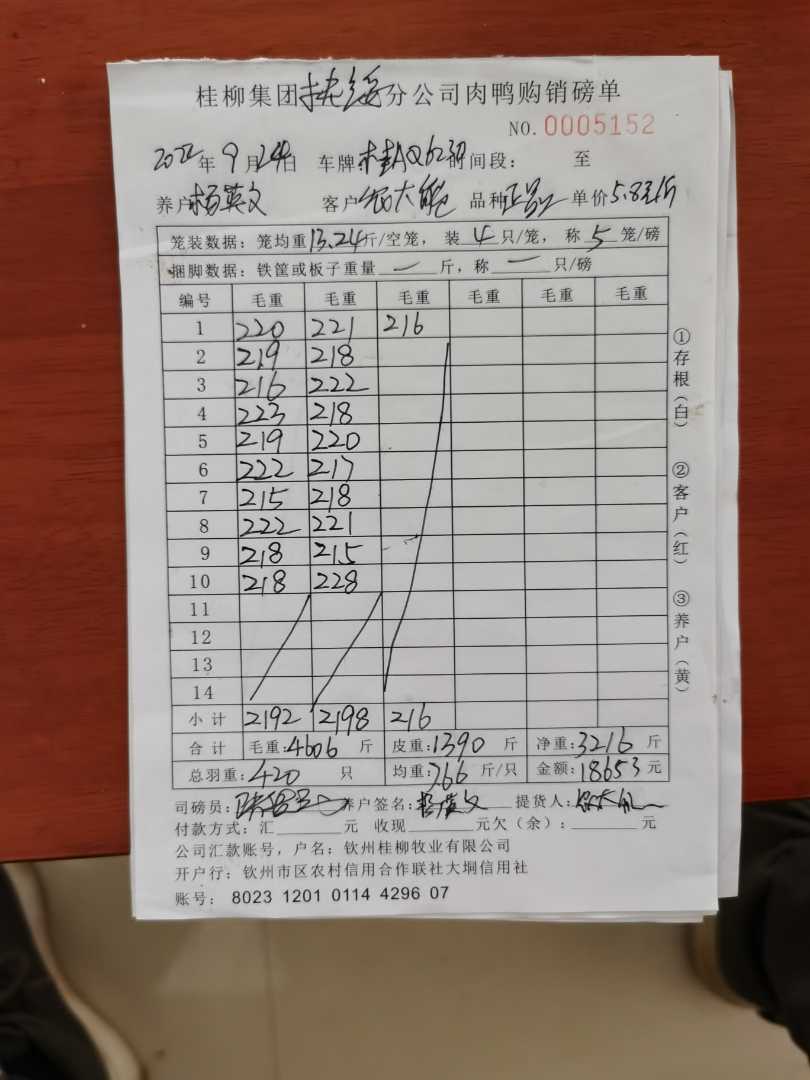 桂柳集团 分公司肉鸭购销磅单
NO.0005152
2022年9月24日 车牌 桂AQ6230 时间段: 至
养户杨英文 客户 大 品种正 单价5.8元/斤
笼装数据：笼均重13.24斤/空笼，装4只/笼，称5笼/磅
捆脚数据：铁筐或板子重量一斤，称一只/磅
编号 毛重 毛重 毛重 毛重 毛重 毛重
1 220 221 216
2 219 218
3 216 222
4 223 218
5 219 220
6 222 217
7 215 218
8 222 221
9 218 215
10 218 228
11
12
13
14
小计 2192 2198 216
合计 毛重:4606斤 皮重:1390斤 净重:3216斤
总羽重:420只 均重:766斤/只 金额:18653元
司磅员: 养户签名:杨英文 提货人:
付款方式：汇 元 收现 元欠（余）: 元
公司汇款账号，户名：钦州桂柳牧业有限公司
开户行：钦州市区农村信用合作联社大垌信用社
账号： 8023 1201 0114 4296 07
①存根（白）
②客户（红）
③养户（黄）